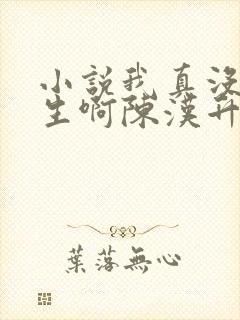 小說我真沒
生啊陳漢升
葉落無心